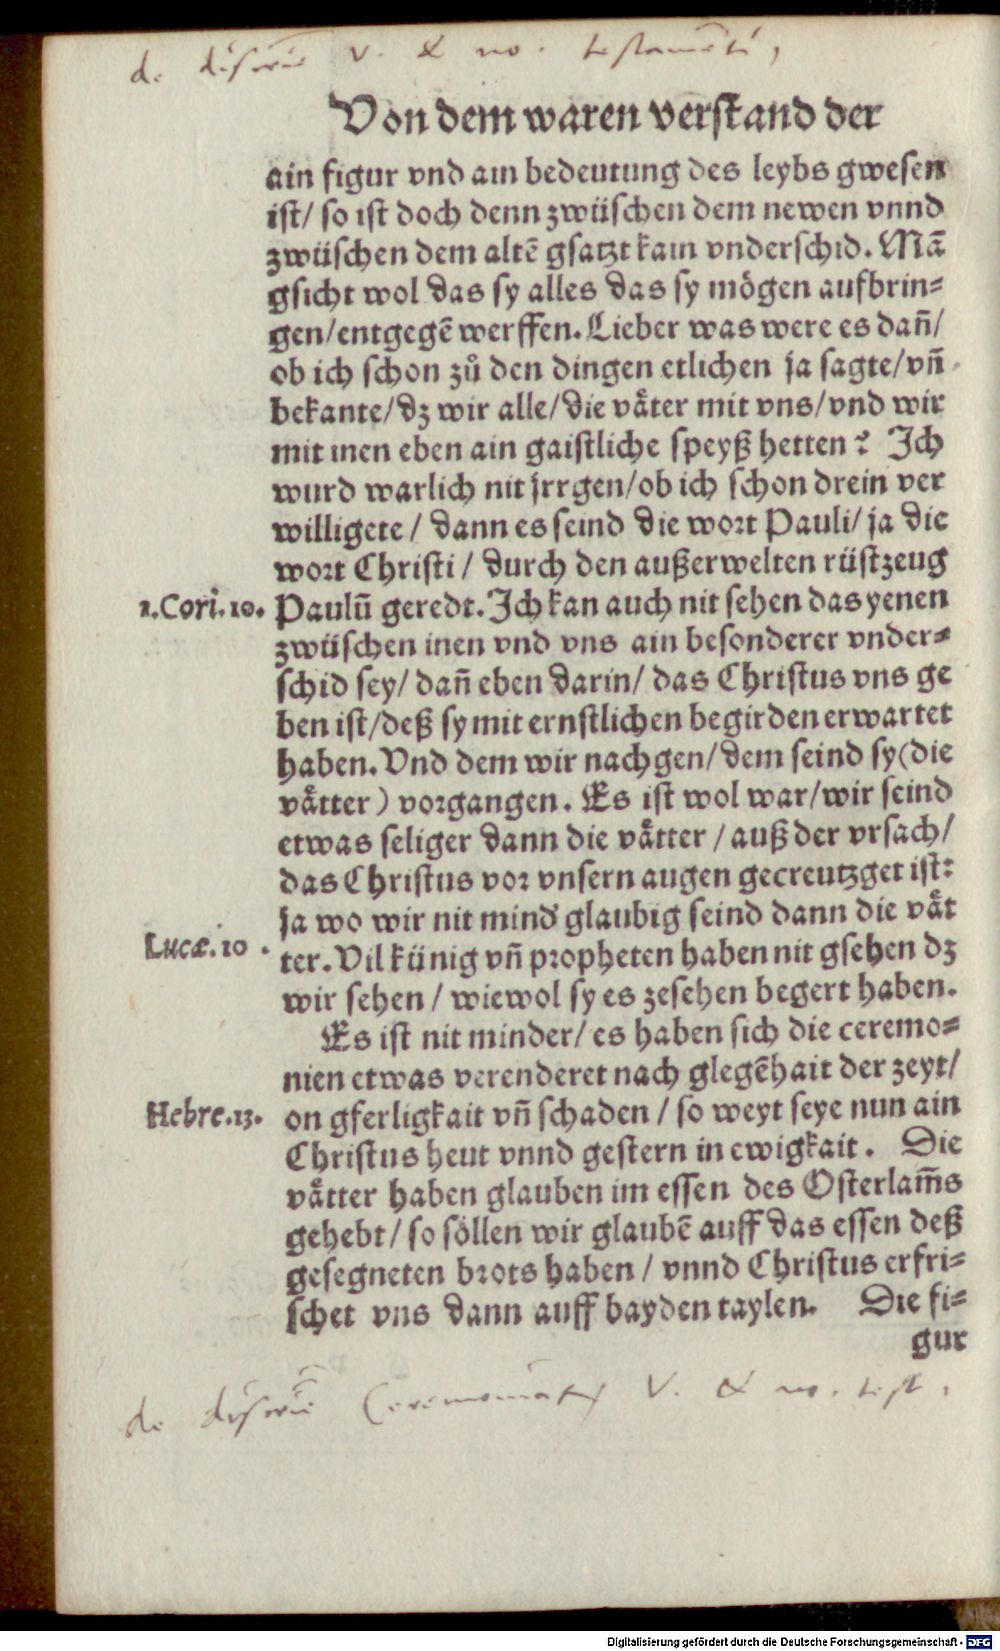 de discrīe v. & no. testamēti,
Von dem waren verstand der
ain figur vnd ain bedeutung des leybs gwesen
ist/ so ist doch denn zwüschen dem newen vnnd
zwüschen dem altē gsatzt kain vnderschid. Mā
gsicht wol das sy alles das sy mögen aufbrin⸗
gen/entgegē werffen. Lieber was were es dañ/
ob ich schon zů den dingen etlichen ja sagte/vñ
bekante/dz wir alle/die väter mit vns/vnd wir
mit inen eben ain gaistliche speyß hetten? Ich
wurd warlich nit jrrgen/ob ich schon drein ver
willigete/ dann es seind die wort Pauli/ ja die
wort Christi/ durch den außerwelten rüstzeug
1.Cori.10. Paulū geredt. Ich kan auch nit sehen das yenen
zwüschen inen vnd vns ain besonderer vnder⸗
schid sey/ dañ eben darin/ das Christus vns ge
ben ist/deß sy mit ernstlichen begirden erwartet
haben. Vnd dem wir nachgen/dem seind sy(die
vätter) vorgangen. Es ist wol war/wir seind
etwas seliger dann die vätter/auß der vrsach/
das Christus vor vnsern augen gecreutzget ist:
ja wo wir nit mind' glaubig seind dann die vät
Lucæ.10. ter. Vil künig vñ propheten haben nit gsehen dz
wir sehen/ wiewol sy es zesehen begert haben.
Es ist nit minder/ es haben sich die ceremo⸗
nien etwas verenderet nach glegēhait der zeyt/
Hebre.13. on gferligkait vñ schaden/ so weyt seye nun ain
Christus heut vnnd gestern in ewigkait. Die
vätter haben glauben im essen des Osterlam̄s
gehebt/ so söllen wir glaubē auff das essen deß
gesegneten brots haben/ vnnd Christus erfri⸗
schet vns dann auff bayden taylen. Die fi⸗
gur
de discrīe V. & no. test.
Digitalisierung gefördert durch die Deutsche Forschungsgemeinschaft - DFG